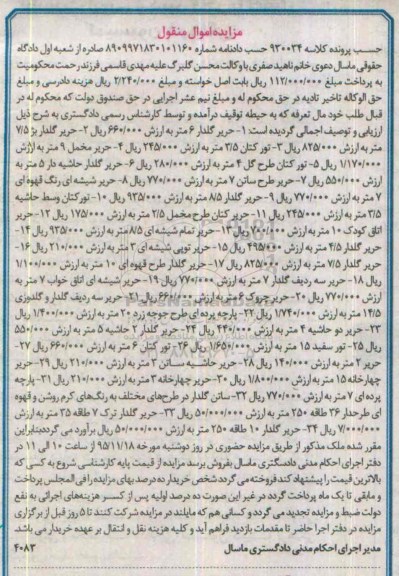 مزایده اموال منقول
حسب پرونده کلاسه 930034 حسب دادنامه شماره 8909971830101160 صادره از شعبه اول دادگاه
حقوقی ماسال دعوی خانم ناهید صفری با وکالت محسن گلبرگ علیه مهدی قاسمی فرزند رحمت محکومیت
به پرداخت مبلغ 112/000/000 ریال بابت اصل خواسته و مبلغ 2/240/000 ریال هزینه دادرسی و مبلغ
حق الوکاله تاخیر تادیه در حق محکوم له و مبلغ نیم عشر اجرایی در حق صندوق دولت که محکوم له در
قبال طلب خود مال تعرفه که به حیطه توقیف درآمده و توسط کارشناس رسمی دادگستری به شرح ذیل
ارزیابی و توصیف اجمالی گردیده است: 1- حریر گلدار 6 متر به ارزش 660/000 ریال 2- حریر گلدار بژ 7/5
متر به ارزش 825/000 ریال 3- تور کتان 3/5 متر به ارزش 245/000 ریال 4- حریر مخمل 9 متر به ارزش
1/170/000 ریال 5- تور کتان طرح گل 4 متر به ارزش 280/000 ریال 6- حریر گلدار حاشیه دار 5 متر به
ارزش 550/000 ریال 7- حریر طرح ساتن 7 متر به ارزش 770/000 ریال 8- حریر شیشه ای رنگ قهوه ای
7 متر به ارزش 770/000 ریال 9- حریر گلدار 8/5 متر به ارزش 935/000 ریال 10- تور کتان وسط حاشیه
3/5 متر به ارزش 245/000 ریال 11- حریر کتان طرح مخمل 2/5 متر به ارزش 175/000 ریال 12- حریر
اتاق کودک 10 متر به ارزش 700/000 ریال 13- حریر تمام شیشه ای 8/5 متر به ارزش 935/000 ریال 14-
حریر گلدار 4/5 متر به ارزش 495/000 ریال 15- حریر توپی شیشه ای 3 متر به ارزش 210/000 ریال 16-
حریر گلدار 7/5 متر به ارزش 825/000 ریال 17- حریر گلدار طرح قهوه ای 10 متر به ارزش 1/100/000
ریال 18- حریر سه ردیف گلدار 7 متر به ارزش 770/000 ریال 19- حریر شیشه ای اتاق خواب 7 متر به
ارزش 770/000 ریال 20- حریر چروک 6 متر به ارزش 660/000 ریال 21- حریر سه ردیف گلدار و گلدوزی
14/5 متر به ارزش 1/740/000 ریال 22- پارچه پرده ای طرح جوجه زرد 20 متر به ارزش 1/400/000 ریال
23- حریر دو حاشیه 4 متر به ارزش 440/000 ریال 24- حریر گلدار 2 حاشیه 5 متر به ارزش 550/000
ریال 25- تور سفید 15 متر به ارزش 1/650/000 ریال 26- تور کتان 6 متر به ارزش 660/000 ریال 27-
حریر 2 متر به ارزش 140/000 ریال 28- حریر حاشیه ساتن 2 متر به ارزش 210/000 ریال 29- حریر
چهارخانه 15 متر به ارزش 1/800/000 ریال 30- حریر چهارخانه 3 متر به ارزش 210/000 ریال 31- پارچه
پرده ای 7 متر به ارزش 770/000 ریال 32- ساتن گلدار در طرح های مختلف به رنگ های کرم روشن و قهوه
ای طرحدار 36 طاقه 250 متر به ارزش 50/000/000 ریال 33- حریر گلدار ترک 7 طاقه 35 متر به ارزش
7/000/000 ریال 34- حریر گلدار 10 طاقه 250 متر به ارزش 50/000/000 ریال برآورد می گردد بنابراین
مقرر شده ملک مذکور از طریق مزایده حضوری در روز دوشنبه مورخه 95/11/18 از ساعت 10 الی 11 در
دفتر اجرای احکام مدنی دادگستری ماسال بفروش برسد مزایده از قیمت پایه کارشناسی شروع به کسی که
بالاترین قیمت را پیشنهاد کند فروخته می گردد شخص خریدار ده درصد بهای مزایده را فی المجلس پرداخت
و مابقی تا یک ماه پرداخت گردد در غیر این صورت ده درصد اولیه پس از کسر هزینه های اجرائی به نفع
دولت ضبط و مزایده تجدید می گردد و کسانی هم که مایلند در مزایده شرکت کنند تا 5 روز قبل از برگزاری
مزایده در دفتر اجرا حاضر تا مقدمات بازدید فراهم آید و کلیه هزینه نقل و انتقال بر عهده خریدار می باشد.
مدیر اجرای احکام مدنی دادگستری ماسال 4083